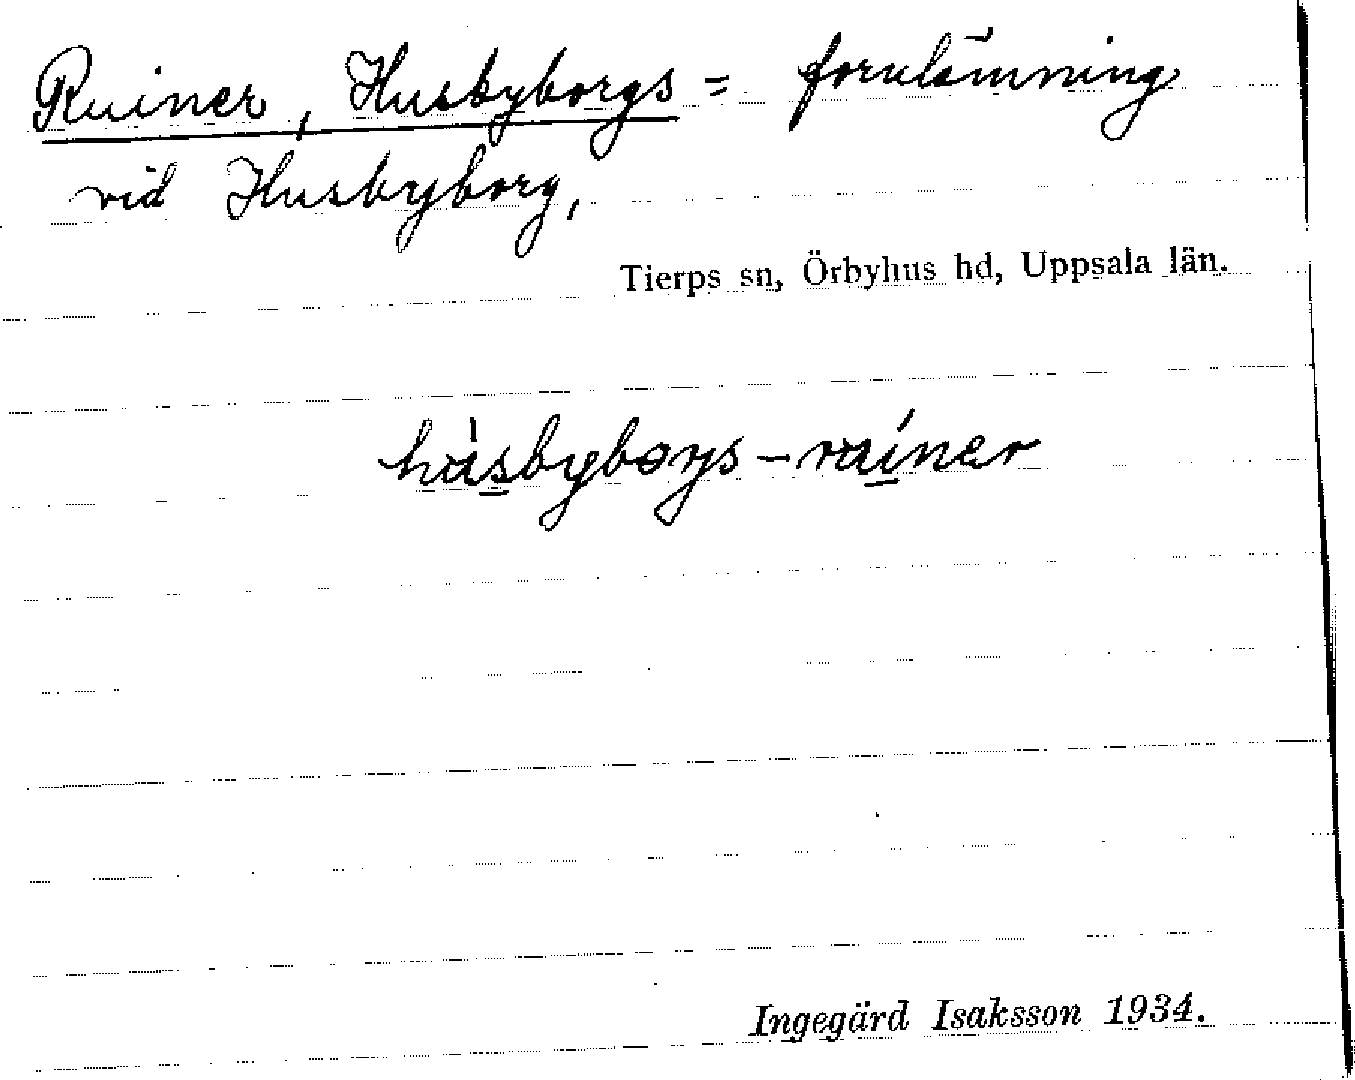 Ruiner, Husbyborgs = fornlämning
vid Husbyborg,
Tierps sn, Örbyhus hd, Uppsala län.
hùsbyboṛgs-ruíner
Ingegärd Isaksson 1934.